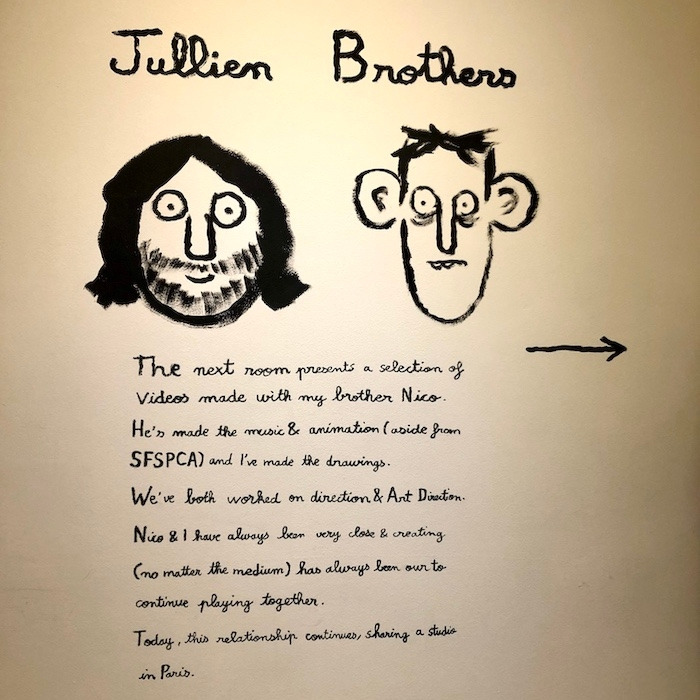 Jullien Brothers
The next room presents a selection of
videos made with my brother Nico.
He's made the music & animation (aside from
SFSPCA) and I've made the drawings.
We've both worked on direction & Art Direction.
Nico & I have always been very close & creating
(no matter the medium) has always been our to
continue playing together.
Today, this relationship continues, sharing a studio
in Paris.